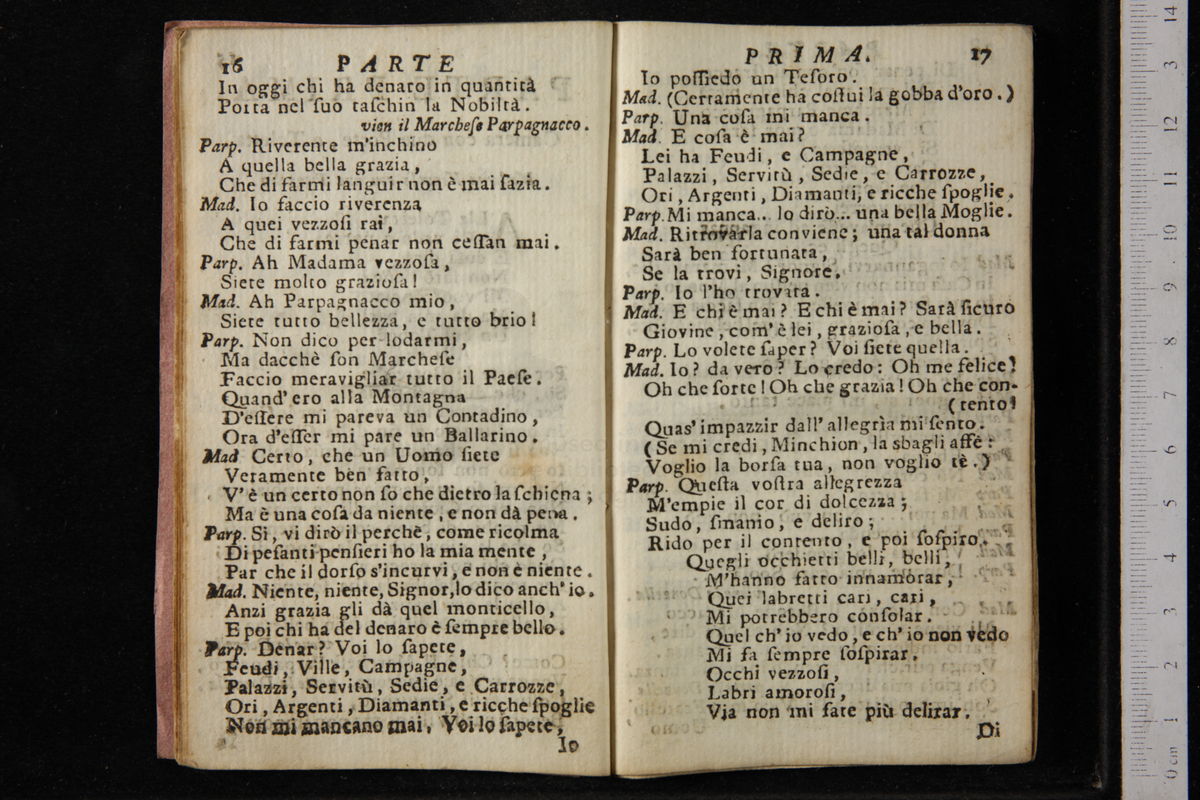 16 PARTE
In oggi chi ha denaro in quantità
Porta nel ſuo taſchin la Nobiltà.
vien il Marcheſe Parpagnacco.
Parp. Riverente m'inchino
A quella bella grazia,
Che di farmi languir non è mai ſazia.
Mad. Io faccio riverenza
A quei vezzoſi rai,
Che di farmi penar non ceſſan mai.
Parp. Ah Madama vezzoſa,
Siete molto grazioſa!
Mad. Ah Parpagnacco mio,
Siete tutto bellezza, e tutto brio!
Parp. Non dico per lodarmi,
Ma dacchè ſon Marcheſe
Faccio meravigliar tutto il Paeſe.
Quand' ero alla Montagna
D'eſſere mi pareva un Contadino,
Ora d'eſſer mi pare un Ballarino.
Mad Certo, che un Uomo ſiete
Veramente ben fatto,
V' è un certo non ſo che dietro la ſchiena;
Ma è una coſa da niente, e non dà pena.
Parp. Si, vi dirò il perchè, come ricolma
Di peſanti penſieri ho la mia mente,
Par che il dorſo s'incurvi, e non è niente.
Mad. Niente, niente, Signor, lo dico anch' io.
Anzi grazia gli dà quel monticello,
E poi chi ha del denaro è ſempre bello.
Parp. Denar? Voi lo ſapete,
Feudi, Ville, Campagne,
Palazzi, Servitù, Sedie, e Carrozze,
Ori, Argenti, Diamanti, e ricche ſpoglie
Non mi mancano mai, Voi lo ſapete,
Io
PRIMA. 17
Io poſſiedo un Teſoro.
Mad. (Certamente ha coſtui la gobba d'oro.)
Parp. Una coſa mi manca.
Mad. E coſa è mai?
Lei ha Feudi, e Campagne,
Palazzi, Servitù, Sedie, e Carrozze,
Ori, Argenti, Diamanti, e ricche ſpoglie.
Parp. Mi manca... lo dirò... una bella Moglie.
Mad. Ritrovarla conviene; una tal donna
Sarà ben fortunata,
Se la trovi, Signore.
Parp. Io l'ho trovata.
Mad. E chi è mai? E chi è mai? Sarà ſicuro
Giovine, com' è lei, grazioſa, e bella.
Parp. Lo volete ſaper? Voi ſiete quella.
Mad. Io? da vero? Lo credo: Oh me felice!
Oh che ſorte! Oh che grazia! Oh che con-
(tento!
Quas' impazzir dall' allegrìa mi ſento.
(Se mi credi, Minchion, la sbagli affè:
Voglio la borſa tua, non voglio tè.)
Parp. Queſta voſtra allegrezza
M'empie il cor di dolcezza;
Sudo, ſmanio, e deliro;
Rido per il contento, e poi ſoſpiro.
Quegli occhietti belli, belli,
M'hanno fatto innamorar,
Quei labretti cari, cari,
Mi potrebbero conſolar.
Quel ch' io vedo, e ch' io non vedo
Mi fa ſempre ſoſpirar.
Occhi vezzoſi,
Labri amoroſi,
Via non mi fate più delirar.
Di
14
3
12
11
10
9
8
7
6
5
4
3
2
1
0 cm